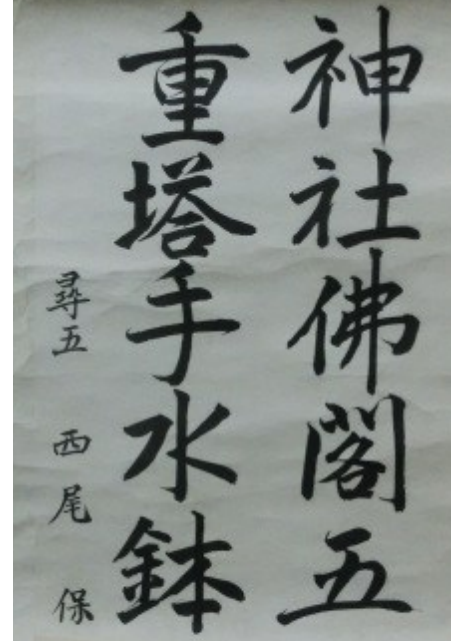 神社佛閣五
重塔手水鉢
尋五 西尾 保